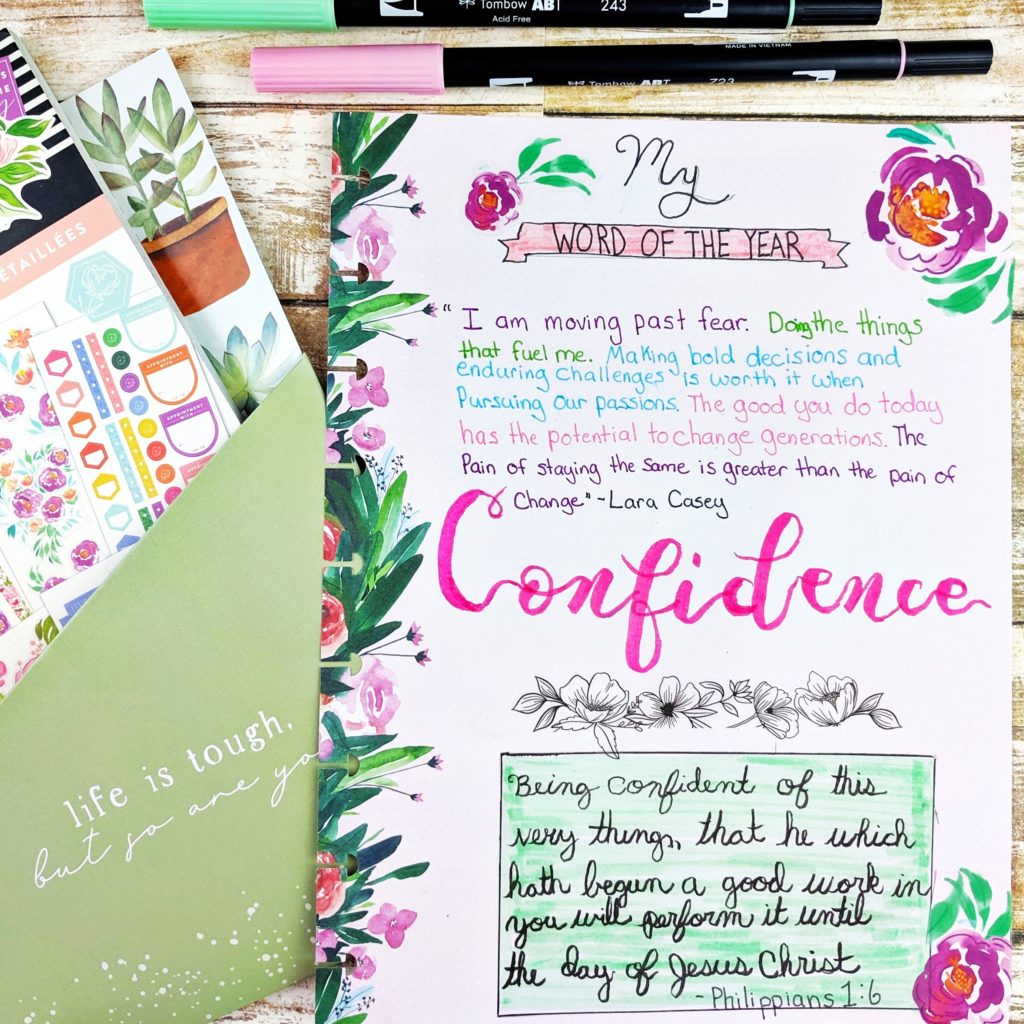 Tombow ABT 243
Acid Free
MADE IN VIETNAM
Tombow ABT 723
My
WORD OF THE YEAR
" I am moving past fear. Doing the things
that fuel me. Making bold decisions and
enduring challenges is worth it when
Pursuing our passions. The good you do today
has the potential to change generations. The
Pain of staying the same is greater than the pain of
Change" -Lara Casey
Confidence
Being confident of this
very thing, that he which
hath begun a good work in
you will perform it until
the day of Jesus Christ
-Philippians 1:6
ÉTAILLÉES
APPOINTMENT WITH
APPOINTMENT WITH
life is tough,
but so are yo